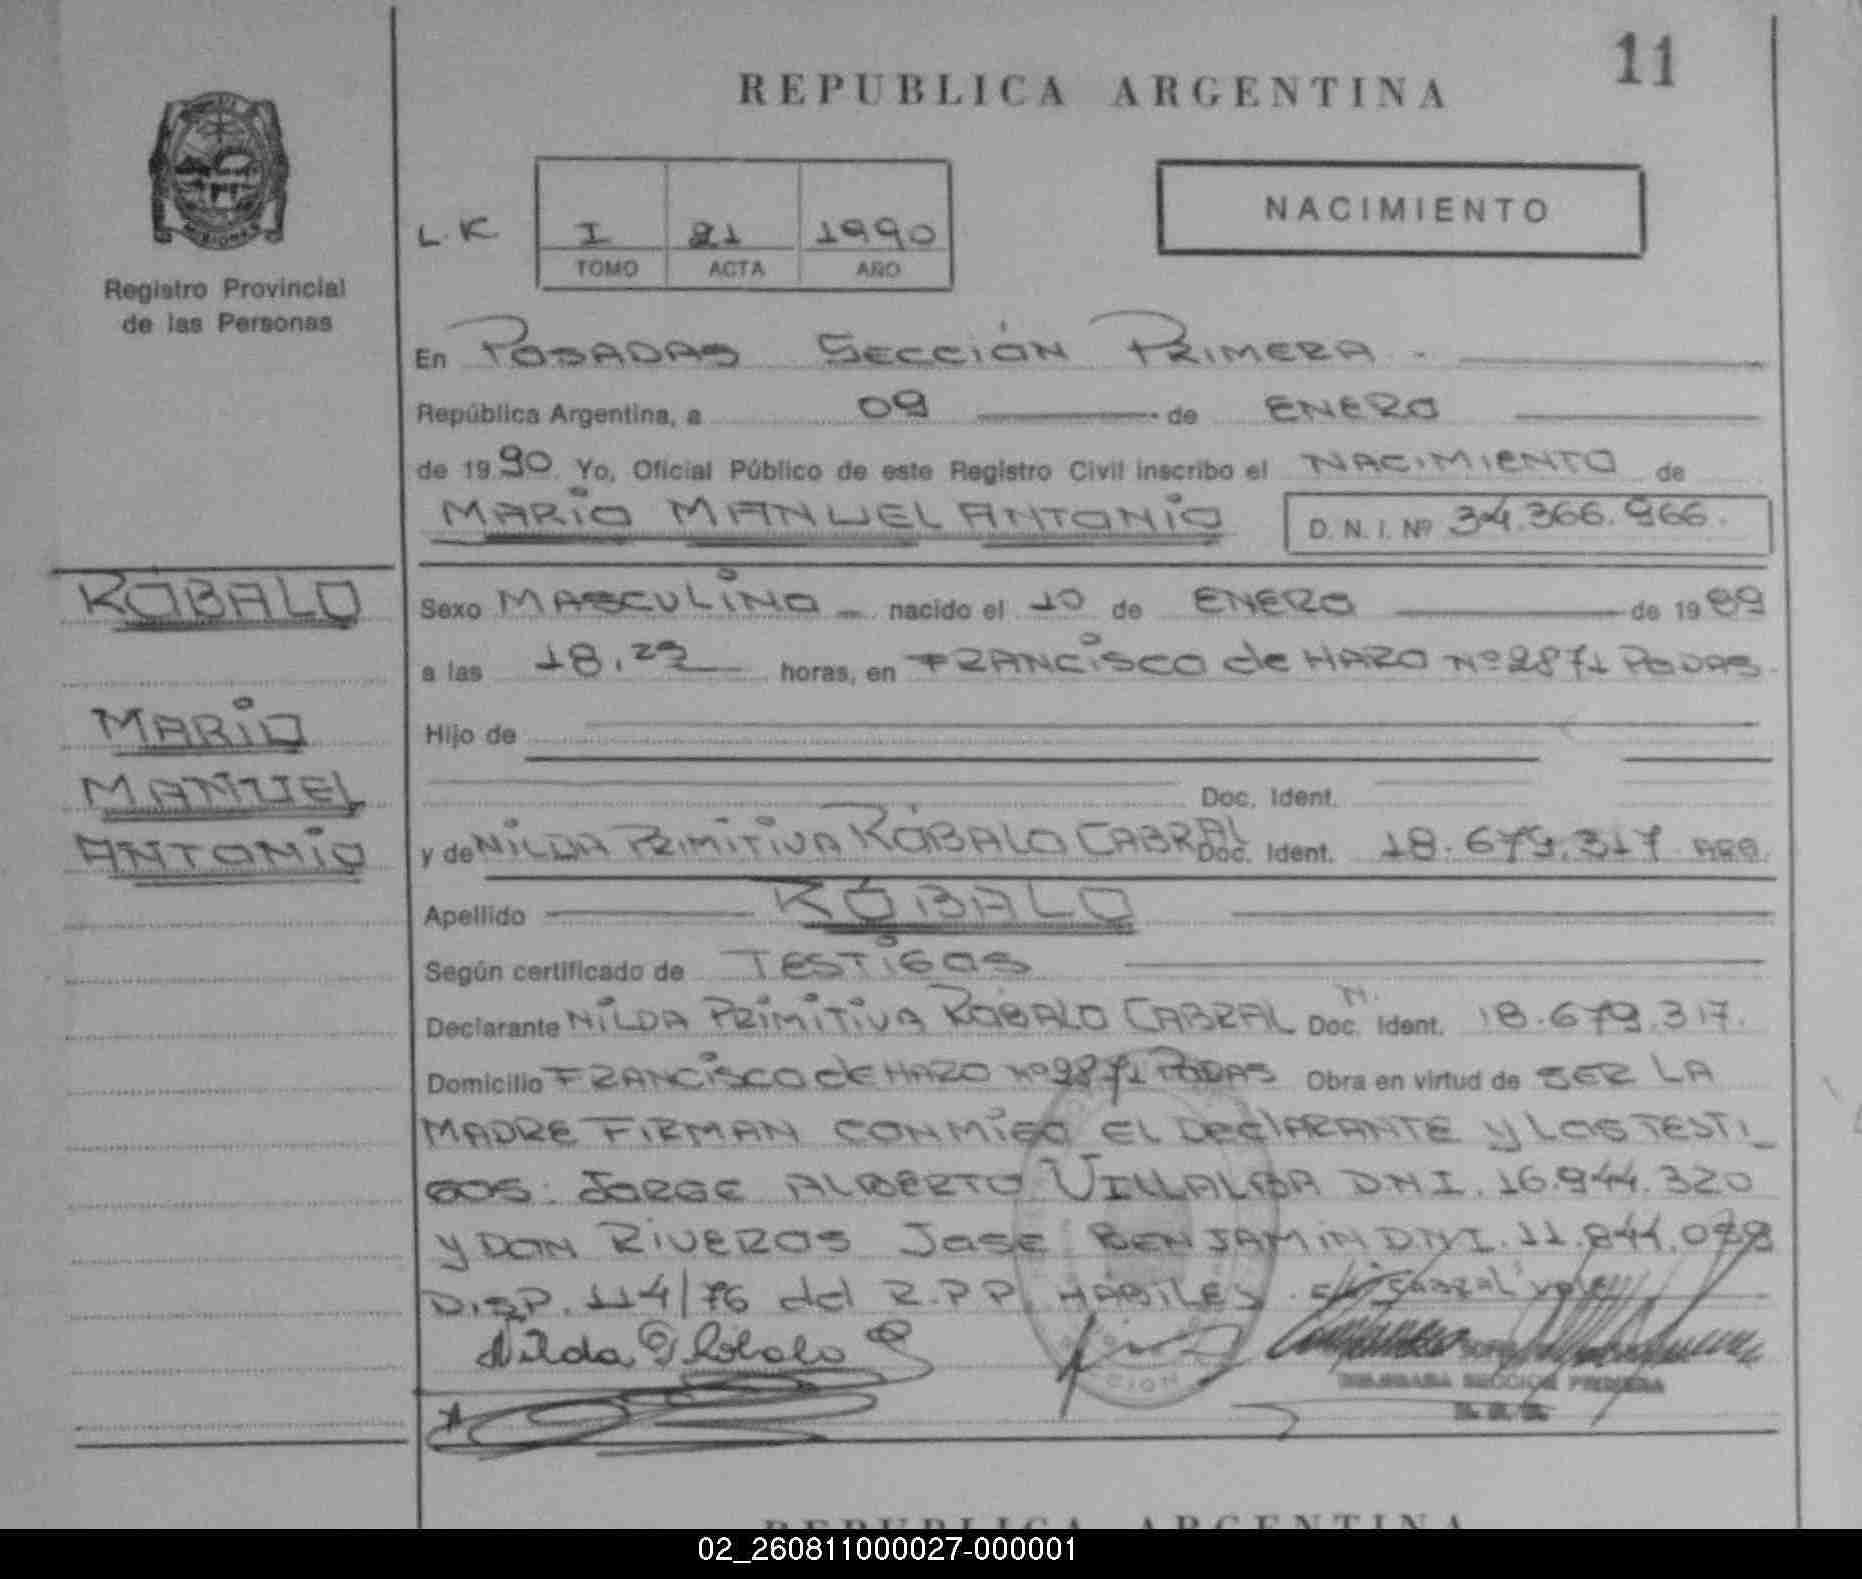 11
REPUBLICA ARGENTINA
NACIMIENTO
L.K I 21 1990
TOMO ACTA AÑO
MISIONES
Registro Provincial
de las Personas
En POSADAS SECCIÓN PRIMERA.
República Argentina, a 09 de ENERO
de 1990. Yo, Oficial Público de este Registro Civil inscribo el NACIMIENTO de
MARIO MANUEL ANTONIO D. N. I. Nº 34.366.966.
RÓBALO
Sexo MASCULINO nacido el 10 de ENERO de 1989
a las 18,29 horas, en FRANCISCO de HARO Nº 2871 PODAS.
MARIO
Hijo de
MANUEL
Doc. Ident.
ANTONIO
y de NILDA PRIMITIVA RÓBALO CABRAL Doc. Ident. 18.679.317 ARG.
Apellido RÓBALO
Según certificado de TESTIGOS
Declarante NILDA PRIMITIVA RÓBALO CABRAL Doc. N. Ident. 18.679.317.
Domicilio FRANCISCO de HARO Nº 2871 PODAS Obra en virtud de SER LA
MADRE FIRMAN CONMIGO EL DEClARANTE y LOS TESTI_
GOS: JORGE ALBERTO VILLALBA DNI. 16.944.320
y DON RIVEROS JOSE BENJAMIN DNI. 11.844.078
DISP. 114/76 del R.P.P. HABILES. "CABRAL" vale
Nilda P Róbalo C
DELEGADA SECCION PRIMERA
REPUBLICA ARGENTINA
02_260811000027-000001